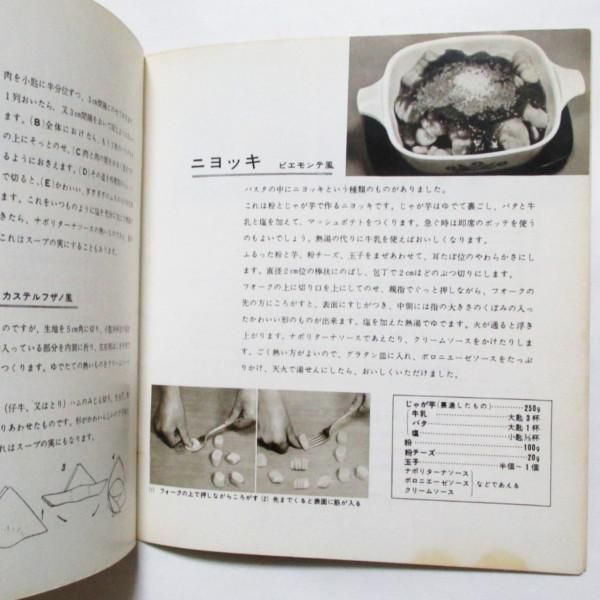 肉を小匙に半分位ずつ、3cm間隔に
1列おいたら、又3cm間隔をおいて
ます。(B)全体におけたら、もう1
の上にそっとのせ、(C)肉と肉の間を
るようにおさえます。(D)その
で切ると、(E)かわいい、
ます。これをいつものように塩を
きたら、ナポリターナソース
これはスープの実にすることもあります。
カステルフザノ風
のですが、生地を5cm角に切り、小匙
入っている部分を内側に折り、
つくります。ゆでたての熱いものをクリームソー
(仔牛、又はとり)ハムのみじん切り、
りあわせたものです。形がかわいらしいので
れはスープの実にもなります。
3
ニヨッキ ピエモンテ風
パスタの中にニヨッキという種類のものがありました。
これは粉とじゃが芋で作るニヨッキです。じゃが芋はゆでて裏ごし、バタと牛
乳と塩を加えて、マッシュポテトをつくります。急ぐ時は即席のポッテを使う
のもよいでしょう。熱湯の代りに牛乳を使えばおいしくなります。
ふるった粉と芋、粉チーズ、玉子をまぜあわせて、耳たぼ位のやわらかさにし
ます。直径2cm位の棒状にのばし、包丁で2cmほどのぶつ切りにします。
フォークの上に切り口を上にしてのせ、親指でぐっと押しながら、フォークの
先の方にころがすと、表面にすじがつき、中側には指の大きさのくぼみの入っ
たかわいい形のものが出来ます。塩を加えた熱湯でゆでます。火が通ると浮き
上がります。ナポリターナソースであえたり、クリームソースをかけたりしま
す。ごく熱い方がよいので、グラタン皿に入れ、ボロニエーゼソースをたっぷ
りかけ、天火で湯せんにしたら、おいしくいただけました。
(1) フォークの上で押しながらころがす (2) 先までくると表面に筋が入る
じゃが芋(裏漉したもの)………250g
牛乳………大匙3杯
バタ………大匙1杯
塩………小匙½杯
粉………100g
粉チーズ………20g
玉子………半個〜1個
ナポリターナソース
ボロニエーゼソース などであえる
クリームソース